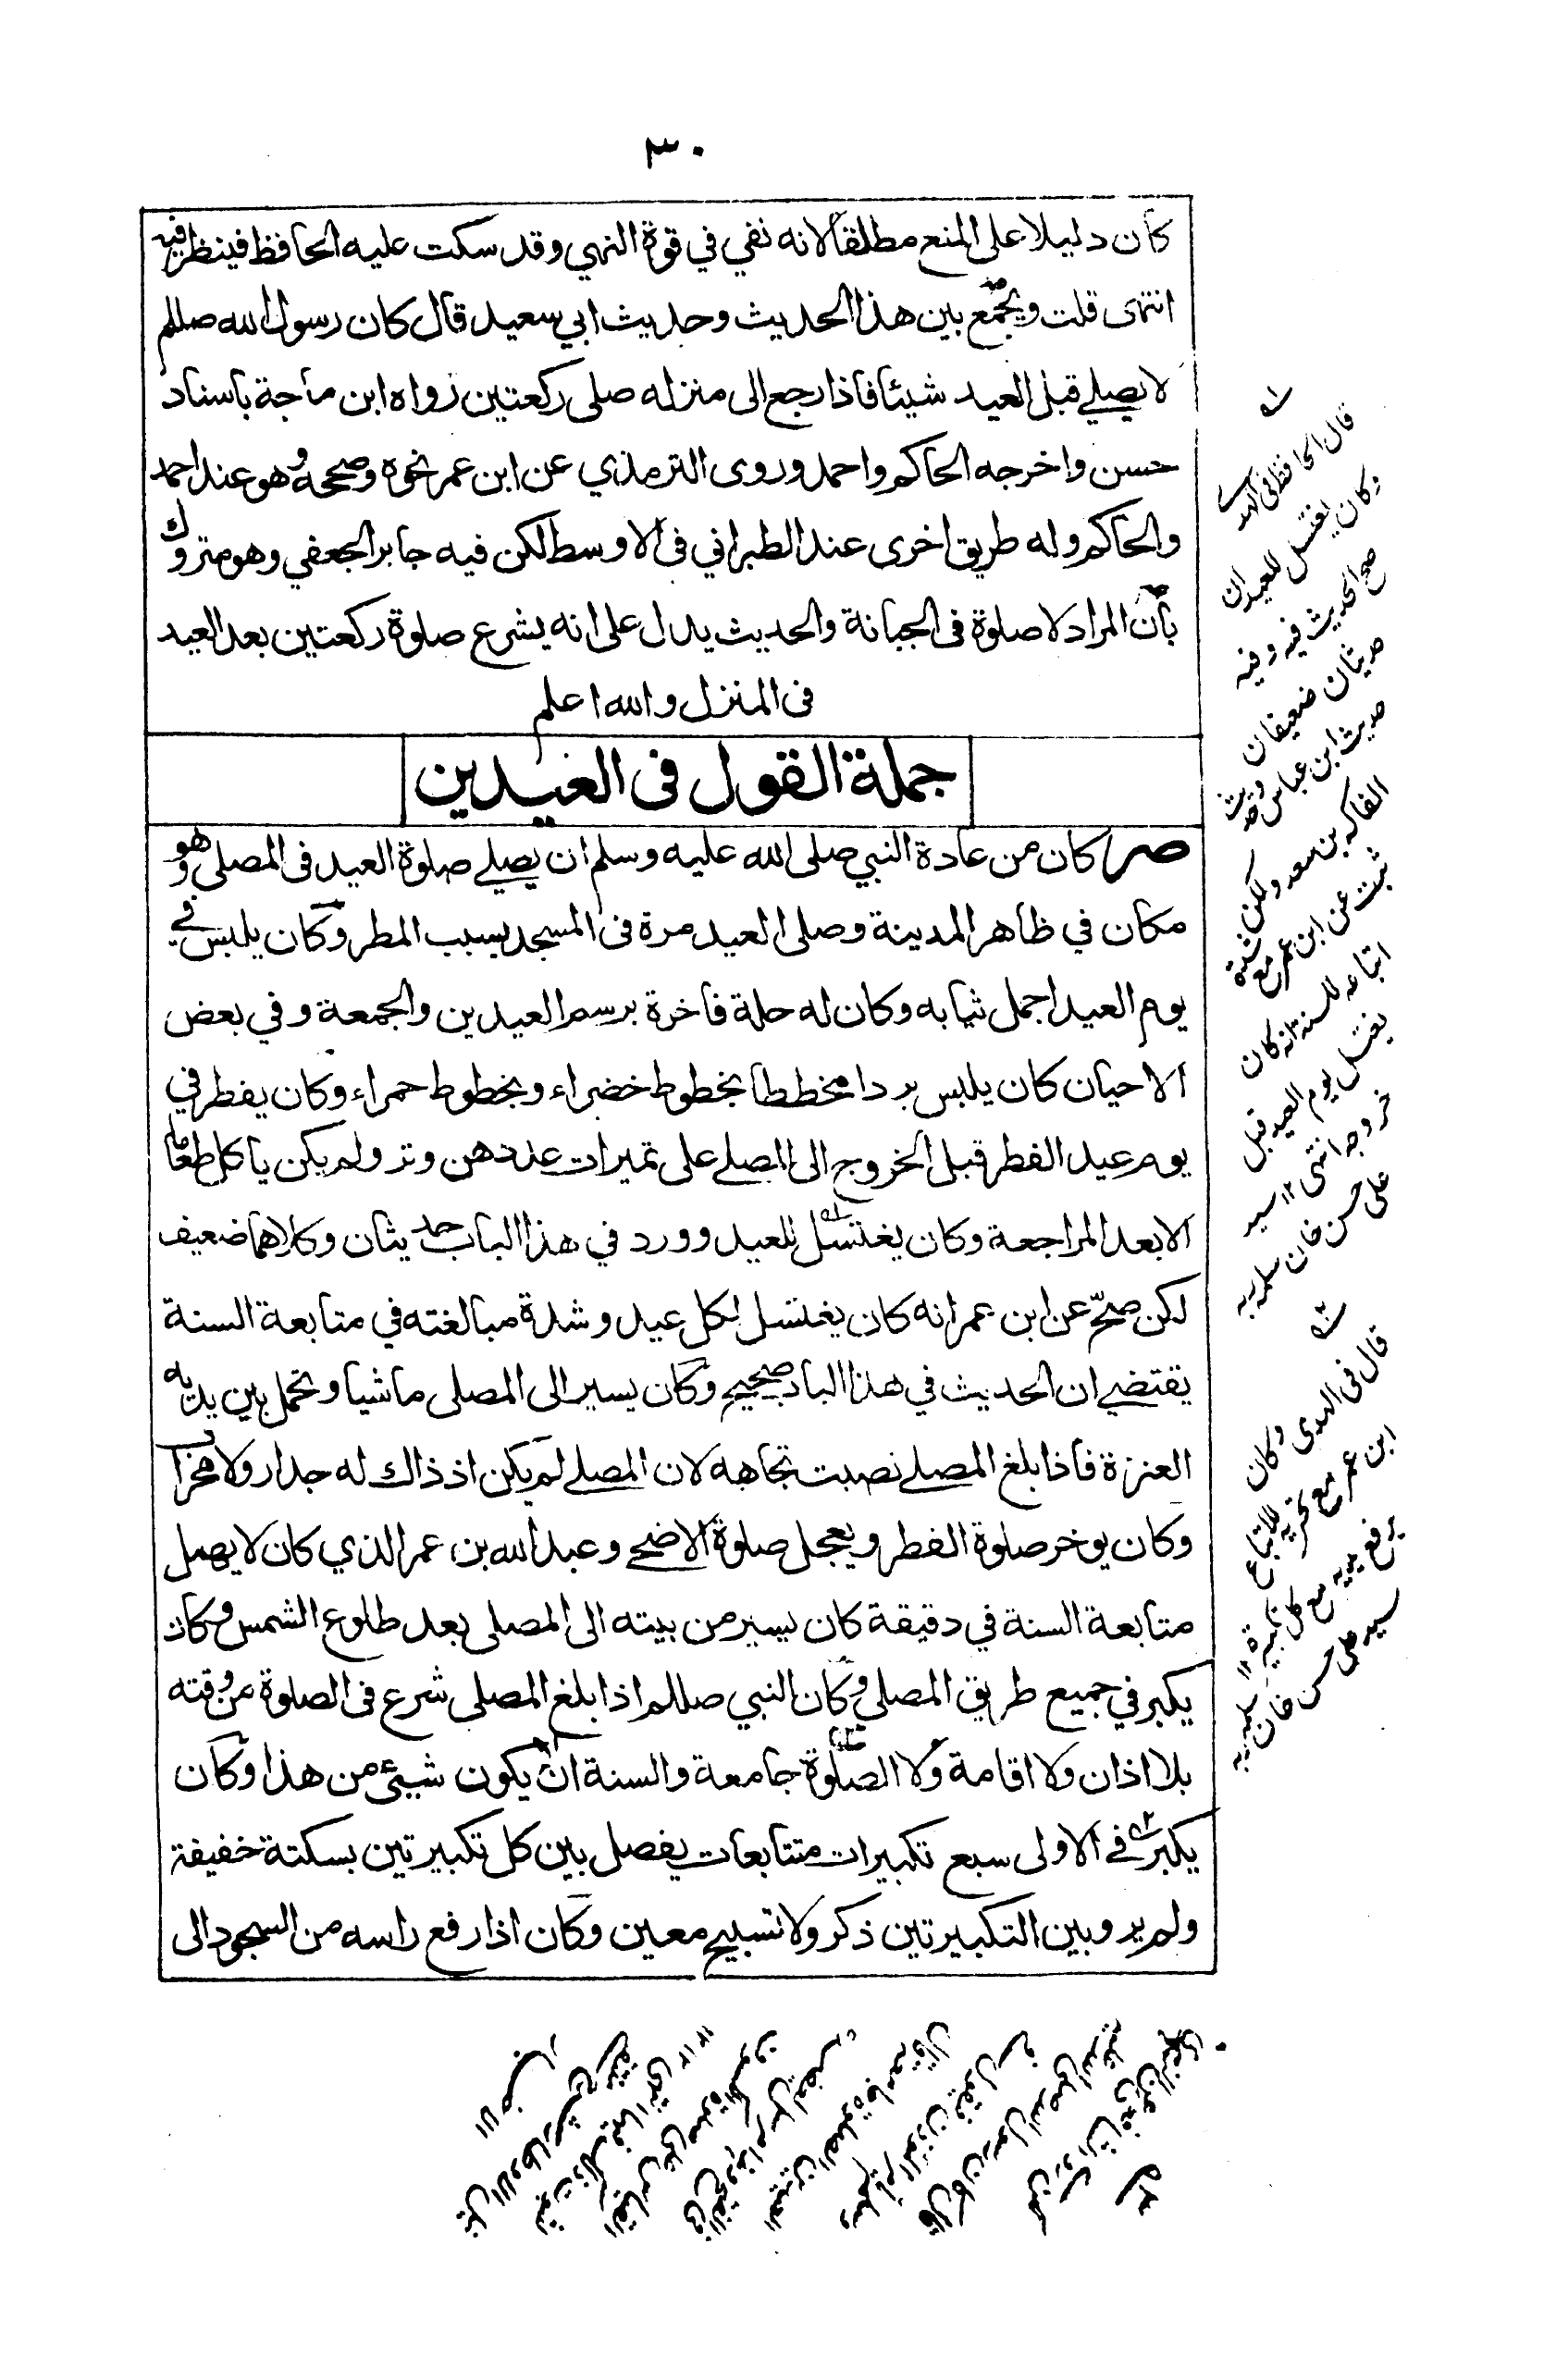 ٣٠
كان دليلا على المنع مطلقا لانه نفي في قوة النهي وقد سكت عليه الحافظ فينظر فيه
انتهى قلت ويجمع بين هذا الحديث وحديث ابي سعيد قال كان رسول الله صللم
لا يصلي قبل العيد شيئا فاذا رجع الى منزله صلى ركعتين رواه ابن ماجة باسناد
حسن واخرجه الحاكم واحمد وروى الترمذي عن ابن عمر نحوه وصححه وهو عند احمد
والحاكم وله طريق اخرى عند الطبراني فى الاوسط لكن فيه جابر الجعفي وهو متروك
بان المراد لا صلوة فى الجبانة والحديث يدل على انه يشرع صلوة ركعتين بعد العيد
فى المنزل والله اعلم
جملة القول فى العيدين
صر كان من عادة النبي صلى الله عليه وسلم ان يصلي صلوة العيد فى المصلى وهو
مكان في ظاهر المدينة وصلى العيد مرة فى المسجد بسبب المطر وكان يلبس في
يوم العيد اجمل ثيابه وكان له حلة فاخرة برسم العيدين والجمعة وفي بعض
الاحيان كان يلبس بردا مخططا بخطوط خضراء وبخطوط حمراء وكان يفطر في
يوم عيد الفطر قبل الخروج الى المصلى على تميرات عددهن وتر ولم يكن ياكل طعاما
الا بعد المراجعة وكان يغتسل للعيد وورد في هذا الباب حديثان وكلاهما ضعيف
لكن صحّ عن ابن عمر انه كان يغتسل لكل عيد وشدة مبالغته في متابعة السنة
يقتضي ان الحديث في هذا الباب صحيح وكان يسير الى المصلى ماشيا وتحمل بين يديه
العنزة فاذا بلغ المصلى نصبت تجاهه لان المصلى لم يكن اذ ذاك له جدار ولا محراب
وكان يوخر صلوة الفطر ويعجل صلوة الاضحى وعبد الله بن عمر الذي كان لا يهمل
متابعة السنة في دقيقة كان يسير من بيته الى المصلى بعد طلوع الشمس وكان
يكبر في جميع طريق المصلى وكان النبي صللم اذا بلغ المصلى شرع فى الصلوة من وقته
بلا اذان ولا اقامة ولا الصلوة جامعة والسنة ان لا يكون شيئ من هذا وكان
يكبر في الاولى سبع تكبيرات متتابعات يفصل بين كل تكبيرتين بسكتة خفيفة
ولم يرو بين التكبيرتين ذكر ولا تسبيح معين وكان اذا رفع راسه من السجود الى
قال الحافظ فى الهدى
وكان يغتسل للعيد ان
صح الحديث فيه وفيه
حديثان ضعيفان
حديث ابن عباس وحديث
الفاكه بن سعد ولكن
ثبت عن ابن عمر مع شدة
اتباعه للسنة انه كان
يغتسل يوم العيد قبل
خروجه انتهى ١٢ سيد
على حسن خان سلمه ربه
قال فى الهدى وكان
ابن عمر مع تحريه للاتباع
يرفع يديه مع كل تكبيرة ١٢
سيد على حسن خان سلمه ربه